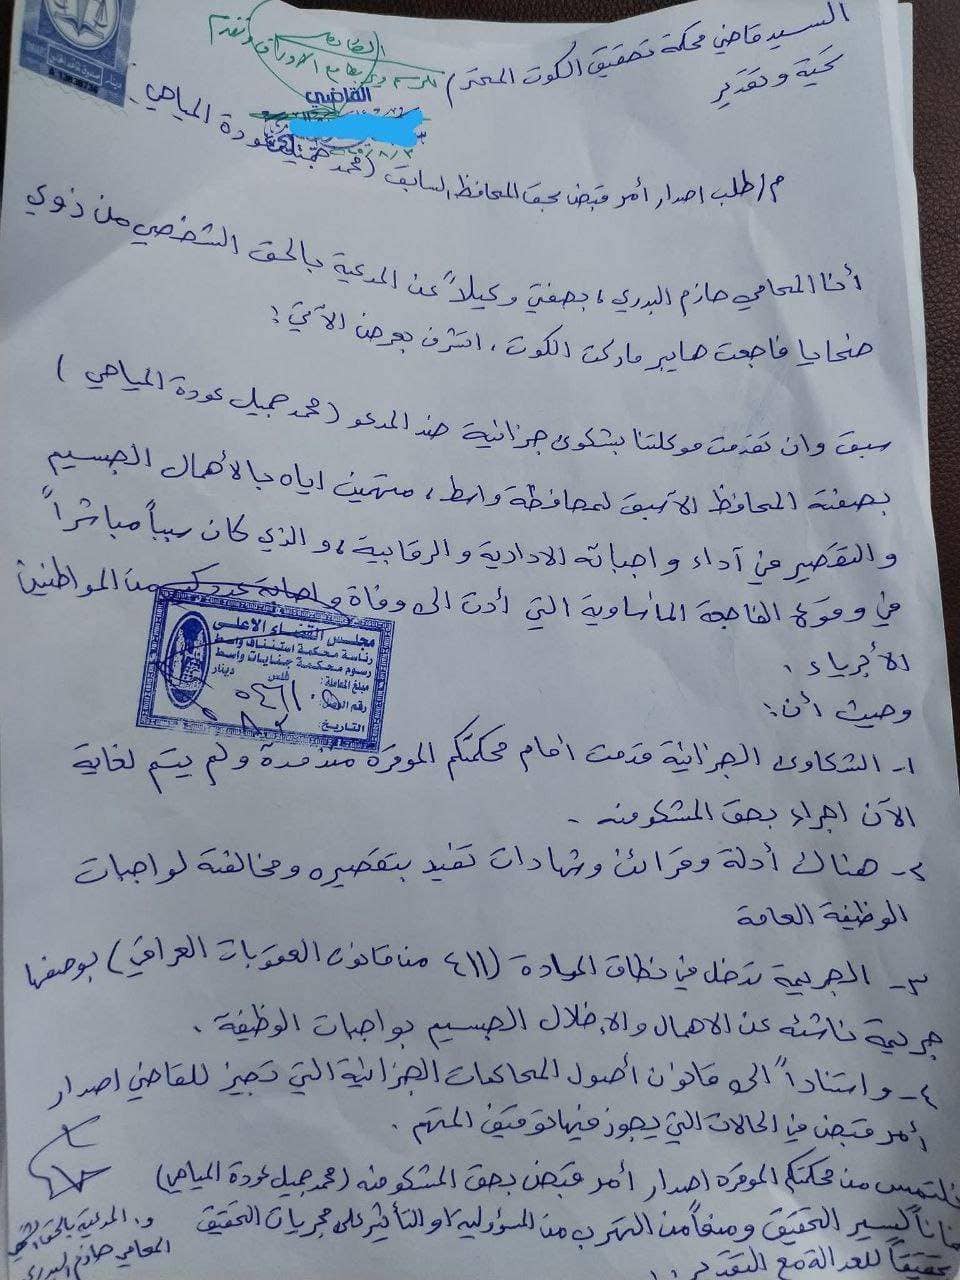 السيد قاضي محكمة تحقيق الكوت المحترم
تحية وتقدير
القاضي
م/ طلب اصدار أمر قبض بحق المحافظ السابق (محمد جميل عودة المياحي)
أنا المحامي حازم البدري، بصفتي وكيلاً عن المدعية بالحق الشخصي من ذوي
ضحايا فاجعت هايبر ماركت الكوت، اتشرف بعرض الآتي:
سبق وان تقدمت موكلتنا بشكوى جزائية ضد المدعو (محمد جميل عودة المياحي)
بصفته المحافظ الاسبق لمحافظة واسط، متهمين اياه بالأهمال الجسيم
والتقصير في آداء واجباته الادارية والرقابية، والذي كان سبباً مباشراً
في وقوع الفاجعة المأساوية التي أدت الى وفاة واصابة عدد كبير من المواطنين
الأبرياء.
مجلس القضاء الاعلى
رئاسة محكمة استئناف واسط
رسوم محكمة جنايات واسط
فلس دينار
مبلغ المعاملة:
رقم الوصل:
التاريخ:
وحيث أن:
١- الشكاوى الجزائية قدمت امام محكمتكم الموقرة منذ مدة ولم يتم لغاية
الآن اجراء بحق المشكو منه.
٢- هناك أدلة وقرائن وشهادات تفيد بتقصيره ومخالفته لواجبات
الوظيفة العامة
٣- الجريمة تدخل في نطاق المادة (٤١١ من قانون العقوبات العراقي) بوصفها
جريمة ناشئه عن الاهمال والاخلال الجسيم بواجبات الوظيفة.
٤- واستناداً الى قانون أصول المحاكمات الجزائية التي تجيز للقاضي اصدار
أمر قبض في الحالات التي يجوز فيها توقيف المتهم.
نلتمس من محكمتكم الموقرة اصدار أمر قبض بحق المشكو منه (محمد جميل عودة المياحي)
ضماناً لسير التحقيق ومنعاً من التهرب من المسؤولية او التأثير على مجريات التحقيق
تحقيقاً للعدالة مع التقدير
و. المدعية بالحق الشخصي
المحامي حازم البدري